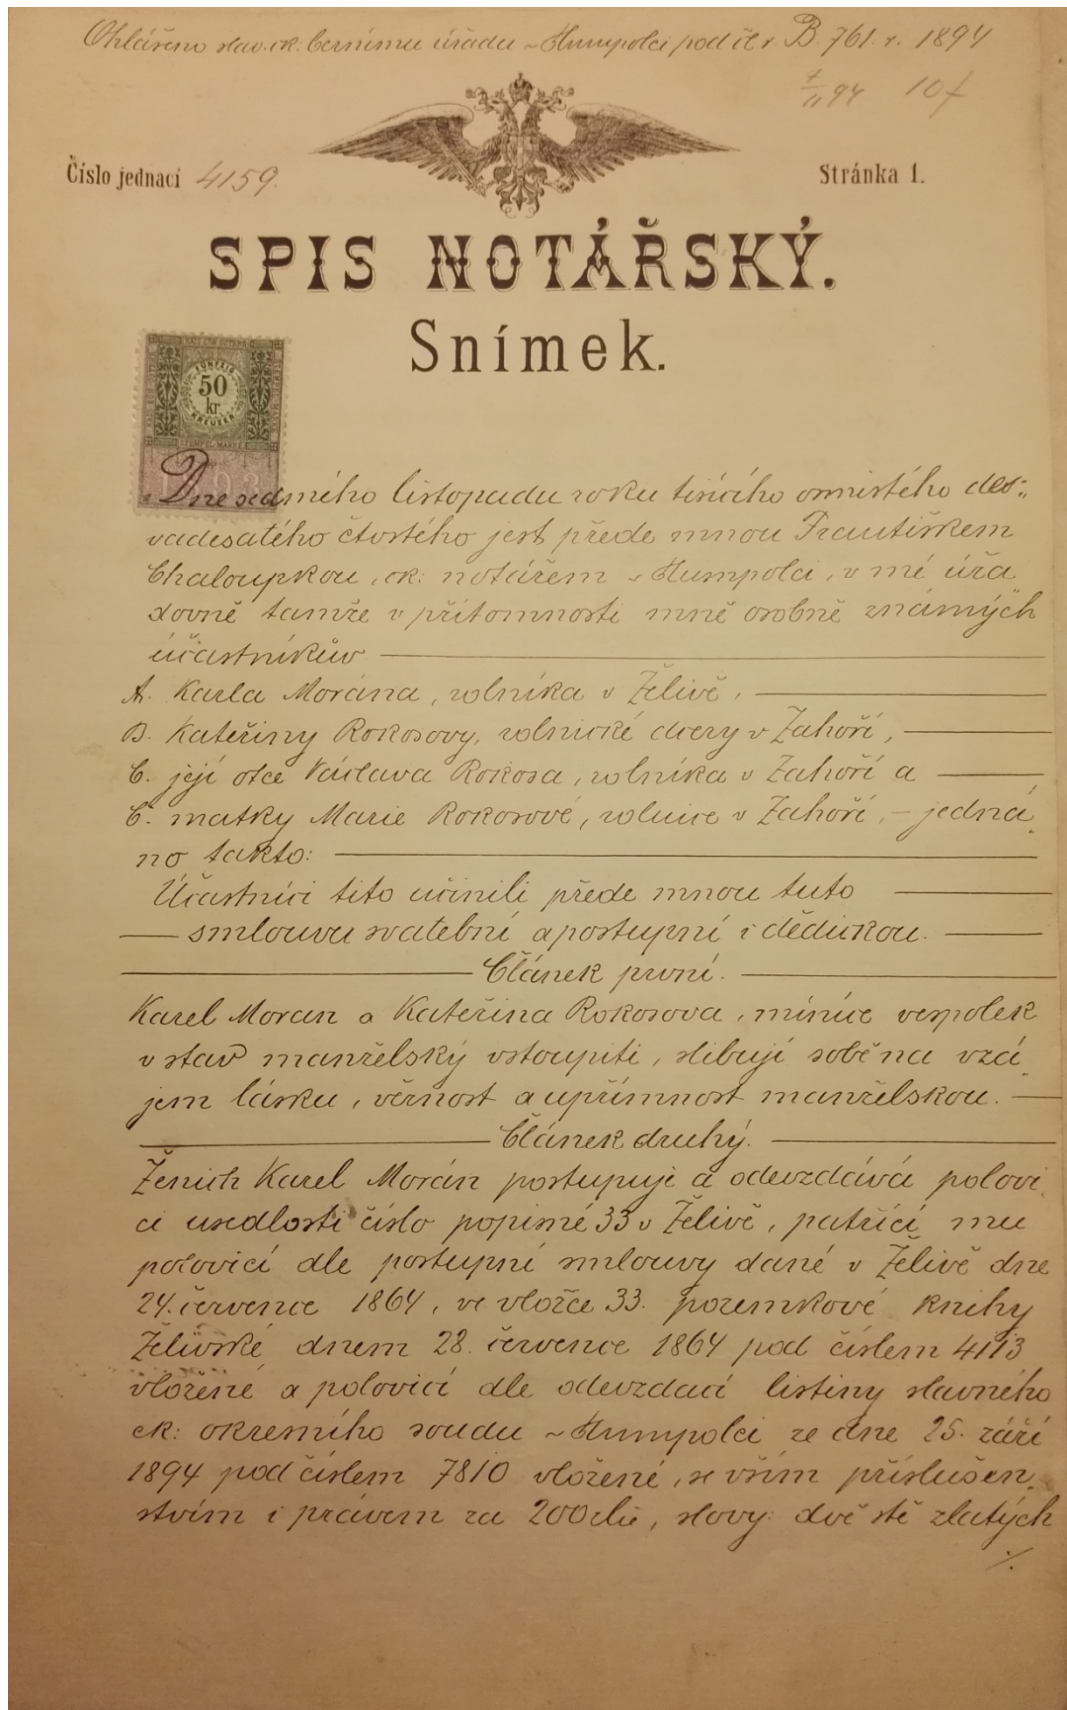 Ohlášeno slav. ck. bernímu úřadu v Humpolci pod čl. r. B. 761. r. 1894
7/11 94 10 f
Číslo jednací 4159.
Stránka 1.
SPIS NOTÁŘSKÝ.
Snímek.
FÜNFZIG
50
kr.
KREUZER
STEMPEL MARKE
1893
Dne sedmého listopadu roku tisícího osmistého deva=
vadesátého čtvrtého jest přede mnou Františkem
Chaloupkou, ck: notářem v Humpolci, v mé úřa
dovně tamže v přítomnosti mně osobně známých
účastníkův
A. Karla Morána, rolníka v Želivě,
B. Kateřiny Rokosovy, rolnické dcery v Záhoří,
C. její otce Václava Rokosa, rolníka v Záhoří a
C. matky Marie Rokosové, rolnice v Záhoří, – jedná
no takto:
Účastníci tito učinili přede mnou tuto
smlouvu svatební a postupní i dědickou.
Článek první.
Karel Moran a Kateřina Rokosova, míníce vespolek
v stav manželský vstoupiti, slibují sobě na vzá
jem lásku, věrnost a upřímnost manželskou.
Článek druhý.
Ženich Karel Morán postupuje a odevzdává polovi
ci usedlosti číslo popisné 33 v Želivě, patřící mu
polovicí dle postupní smlouvy dané v Želivě dne
24. července 1864, ve vložce 33. pozemkové knihy
Želivské dnem 28. července 1864 pod číslem 4113
vložené a polovicí dle odevzdací listiny slavného
ck: okresního soudu v Humpolci ze dne 25. září
1894 pod číslem 7810 vložené, se vším příslušen
stvím i právem za 200 zl., slovy: dvě stě zlatých
./.